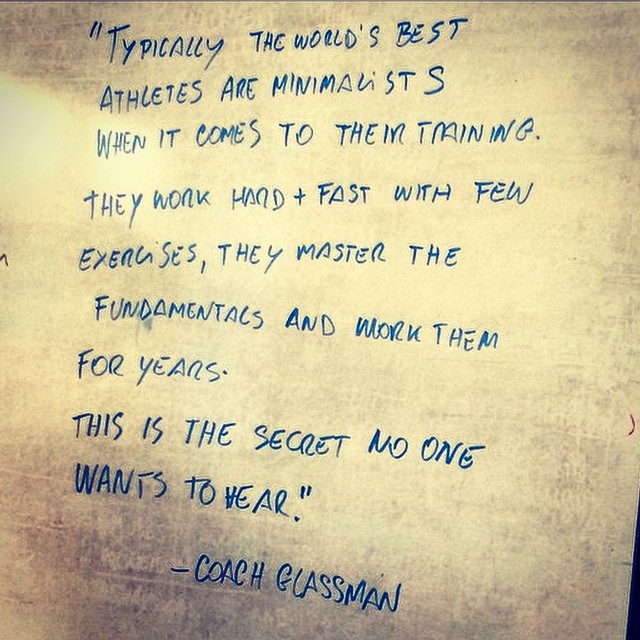 "TYPICALLY THE WORLD'S BEST
ATHLETES ARE MINIMALiSTS
WHEN IT COMES TO THEIR TRAINING.
THEY WORK HARD + FAST WITH FEW
EXERCiSES, THEY MASTER THE
FUNDAMENTALS AND WORK THEM
FOR YEARS.
THIS IS THE SECRET NO ONE
WANTS TO HEAR."
- COACH GLASSMAN